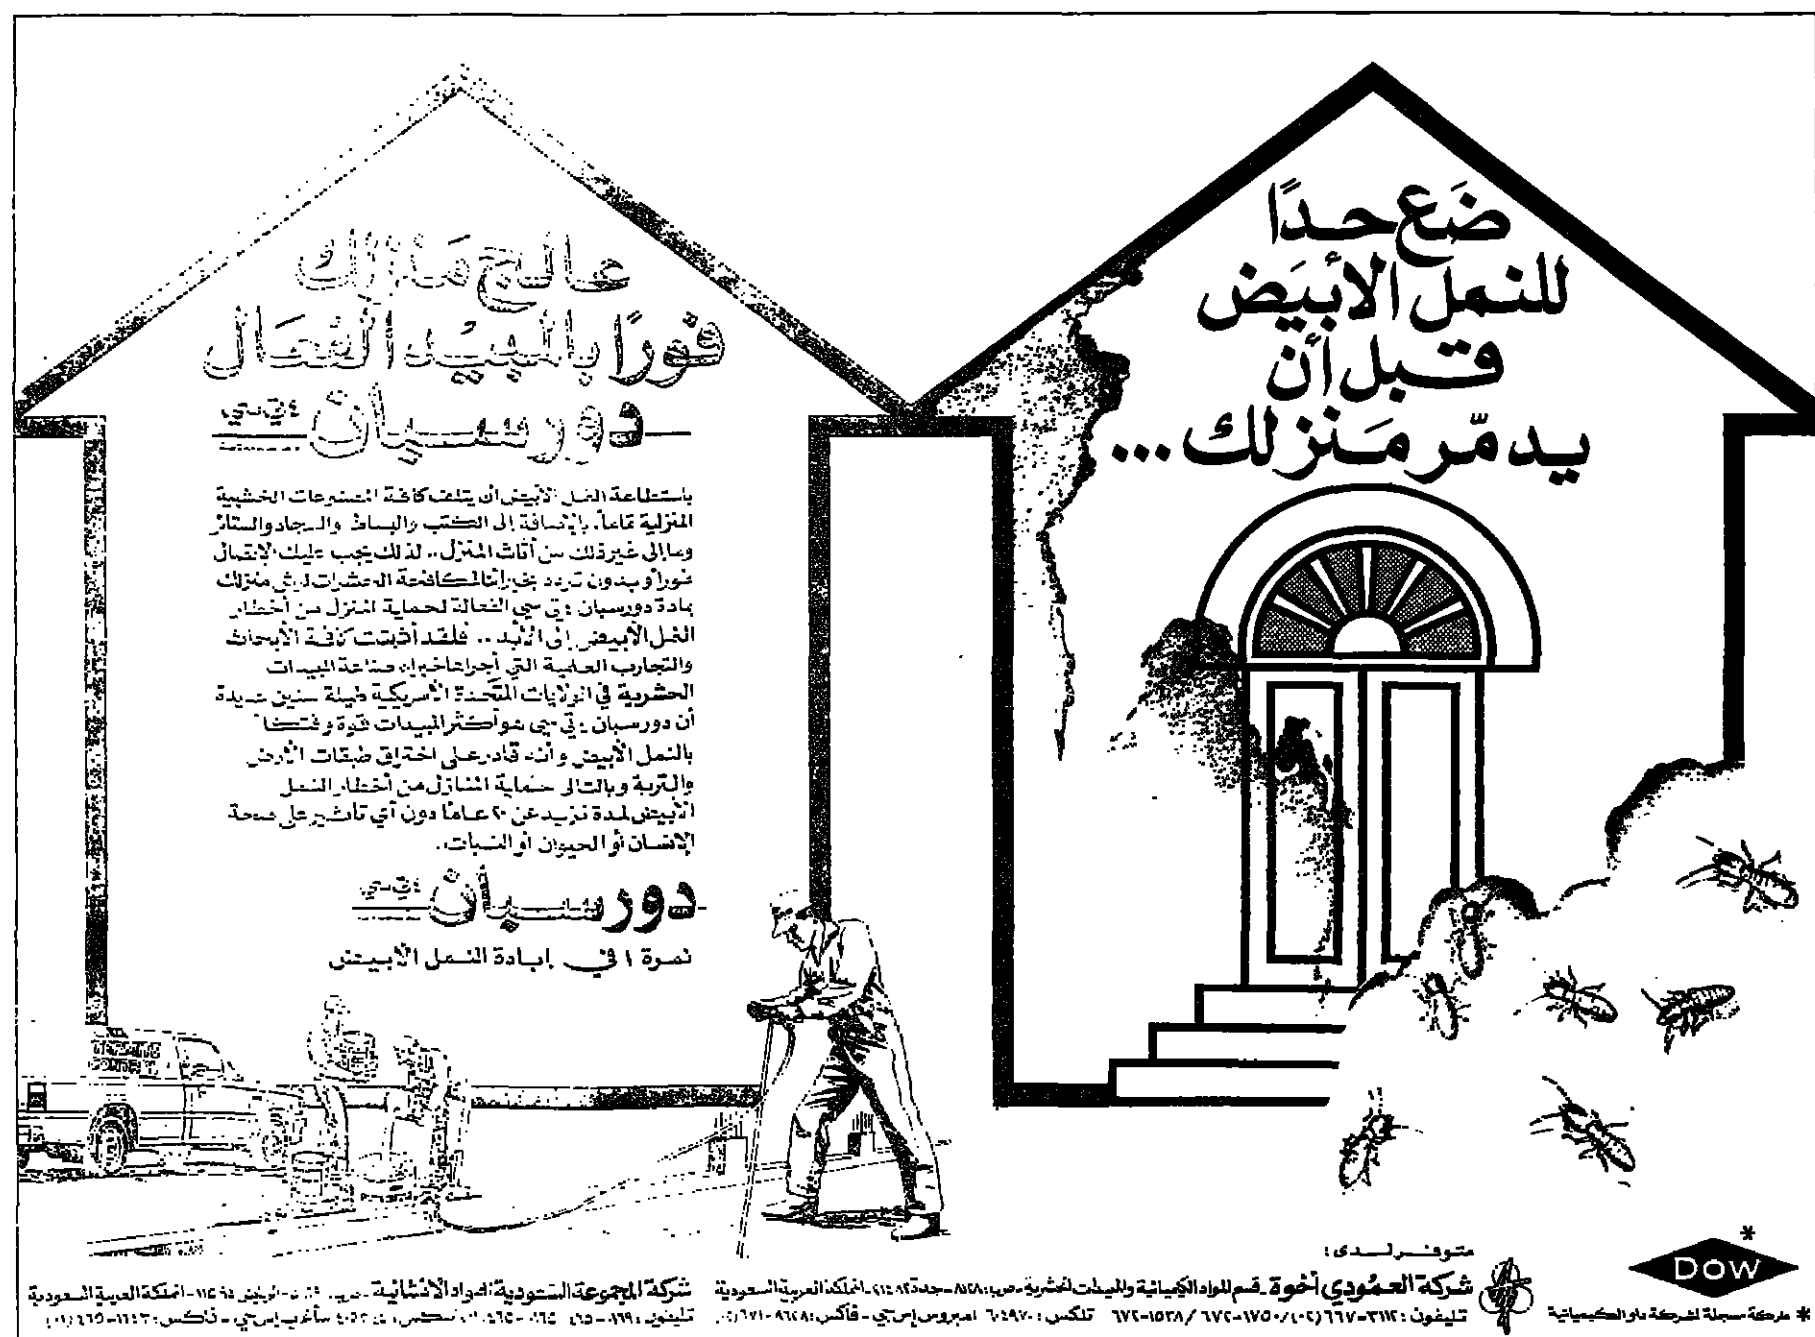 ضَع حدًا
للنمل الأبيَض
قبل أن
يدمّر مَنزلك...
عالج مَنزلك
فورًا بالمبيد الفعَال
دورسبان ٤ تي.سي
باستطاعة النمل الأبيض أن يتلف كافة المصنوعات الخشبية
المنزلية تماماً. بالإضافة إلى الكتب والبساط والسجاد والستائر
وما إلى غير ذلك من أثاث المنزل.. لذلك يجب عليك الإتصال
فوراً وبدون تردد بخبرائنا لمكافحة الحشرات لرش منزلك
بمادة دورسبان ٤ تي سي الفعالة لحماية المنزل من أخطار
النمل الأبيض إلى الأبد.. فلقد أثبتت كافة الأبحاث
والتجارب العلمية التي أجراها خبراء صناعة المبيدات
الحشرية في الولايات المتّحدة الأمريكية طيلة سنين عديدة
أن دورسبان ٤ تي سي هو أكثر المبيدات قوة وفتكاً
بالنمل الأبيض وأنه قادر على اختراق طبقات الأرض
والتربة وبالتالي حماية المنازل من أخطار النمل
الأبيض لمدة تزيد عن ٢٠ عاماً دون أي تأثير على صحة
الإنسان أو الحيوان أو النبات.
دورسبان ٤ تي.سي
نمرة ١ في إبادة النمل الأبيض
*
DOW
* ماركة مسجلة لشركة داو الكيميائية
متوفر لدى:
شركة العمُودي أخوة قسم للمواد الكيميائية والمبيدات الحشرية - ص.ب: ٨١٢٨ - جدة ٢١٤٨٢ - المملكة العربية السعودية
تليفون: ٣١١٢-٦٦٧ (٠٢)/ ١٧٥٠-٦٧٢ / ١٥٣٨-٦٧٢ تلكس: ٦٠٤٩٧٠ امبروس إس جي - فاكس: ٩٦٢٨-٦٧١
شركة المجموعة السعودية للمواد الانشائية - المملكة العربية السعودية